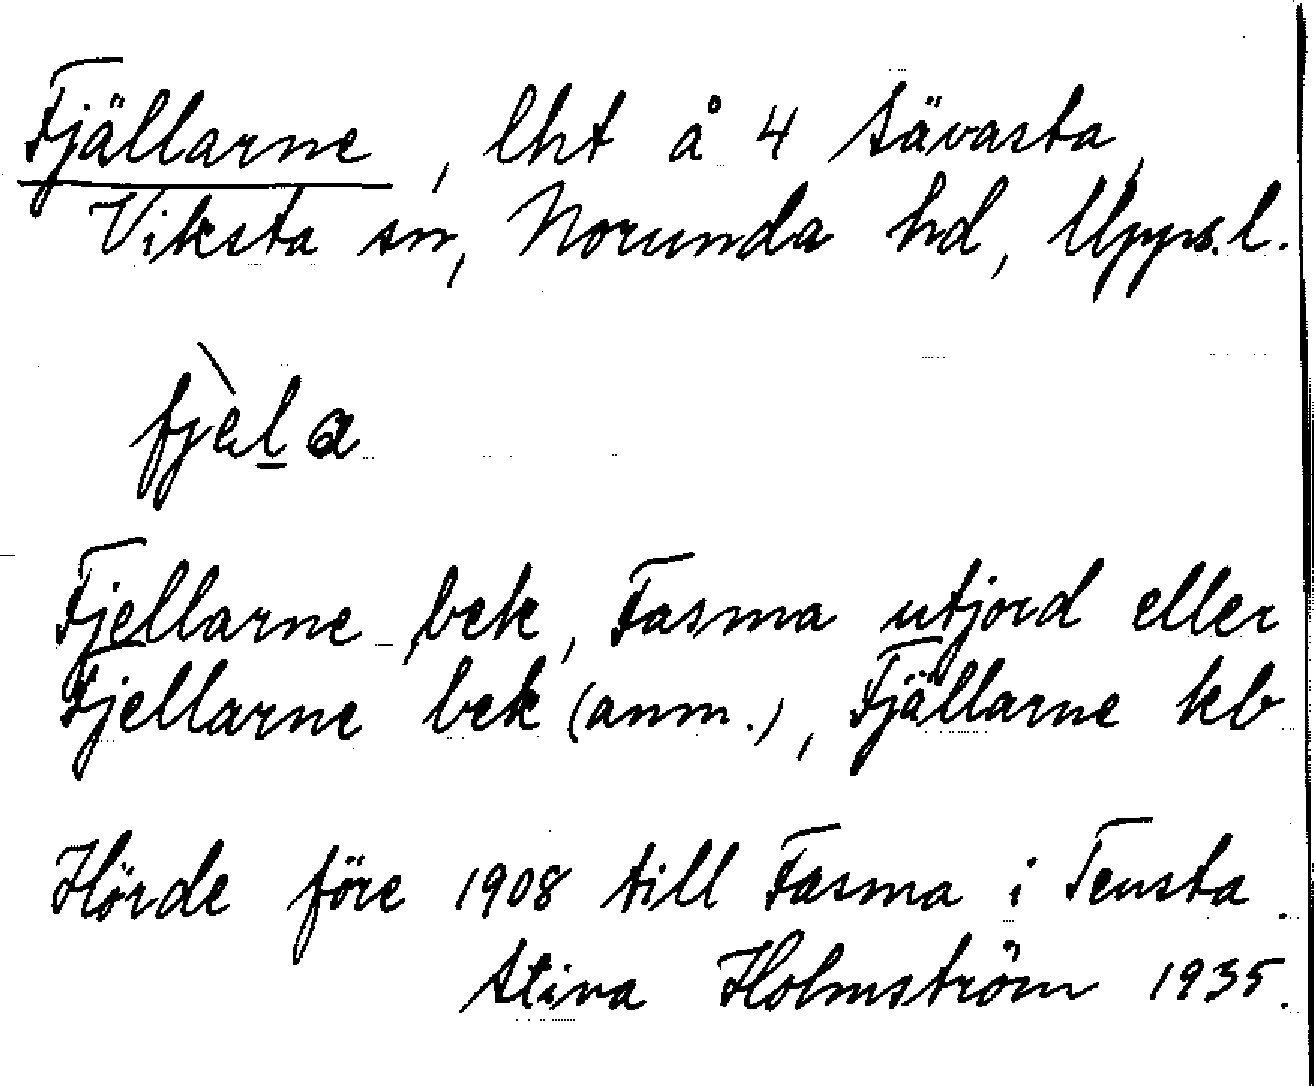 Fjällarne, lht å 4 Sävasta,
Viksta sn, Norunda hd, Upps.l.
fjèla
Fjellarne bek, Fasma utjord eller
Fjellarne bek (anm.), Fjällarne kb
Hörde före 1908 till Fasma i Tensta.
Stina Holmström 1935.